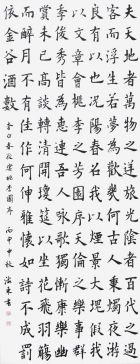 夫天地者萬物之逆旅光陰者百代之過
客而浮生若夢為歡幾何古人秉燭夜遊
良有以也況陽春召我以煙景大塊假我
以文章會桃李之芳園序天倫之樂事群
季俊秀皆為惠連吾人詠歌獨慚康樂幽
賞未已高談轉清開瓊筵以坐花飛羽觴
而醉月不有佳作何伸雅懷如詩不成罰
依金谷酒數
李白春夜宴桃李園序 丙申 秋 書